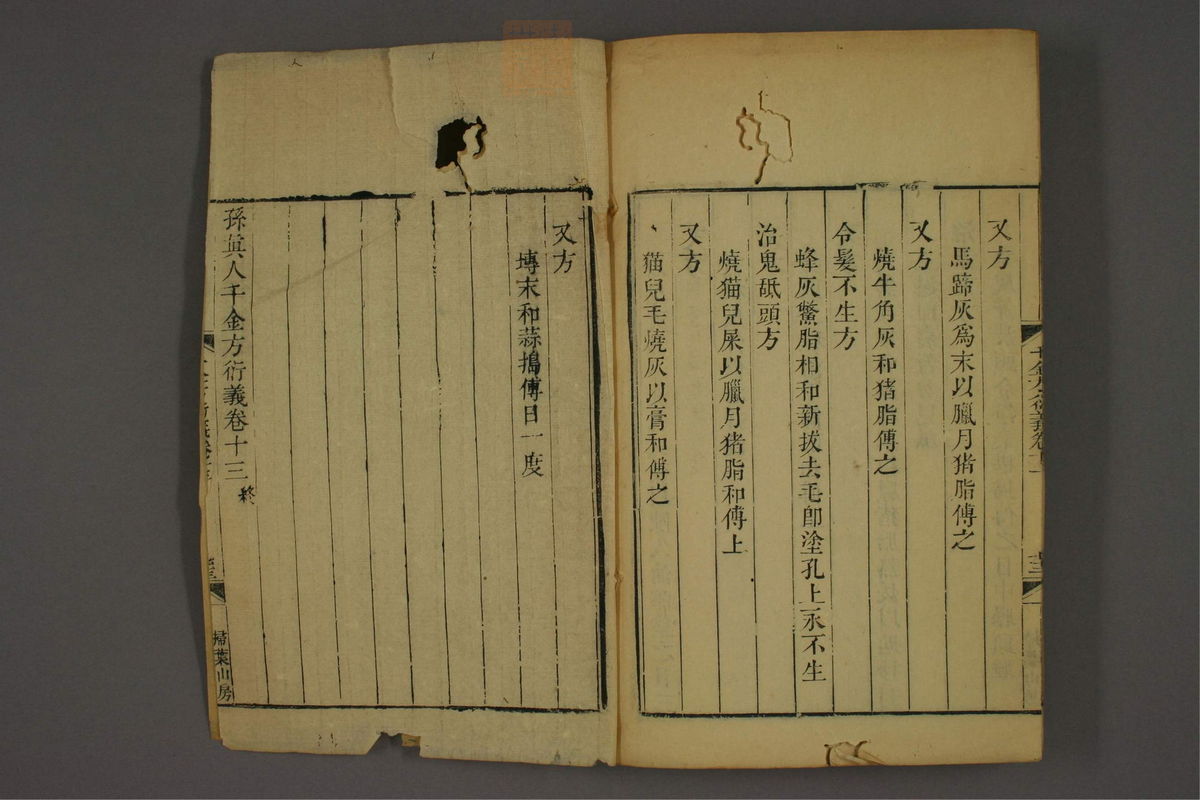 又方
馬蹄灰爲末以臘月猪脂傅之
又方
燒牛角灰和猪脂傅之
令髮不生方
蜂灰鱉脂相和新拔去毛卽塗孔上永不生
治鬼舐頭方
燒猫兒屎以臘月猪脂和傅上
又方
猫兒毛燒灰以膏和傅之
又方
塼末和蒜搗傅日一度
孫眞人千金方衍義卷十三終
掃葉山房